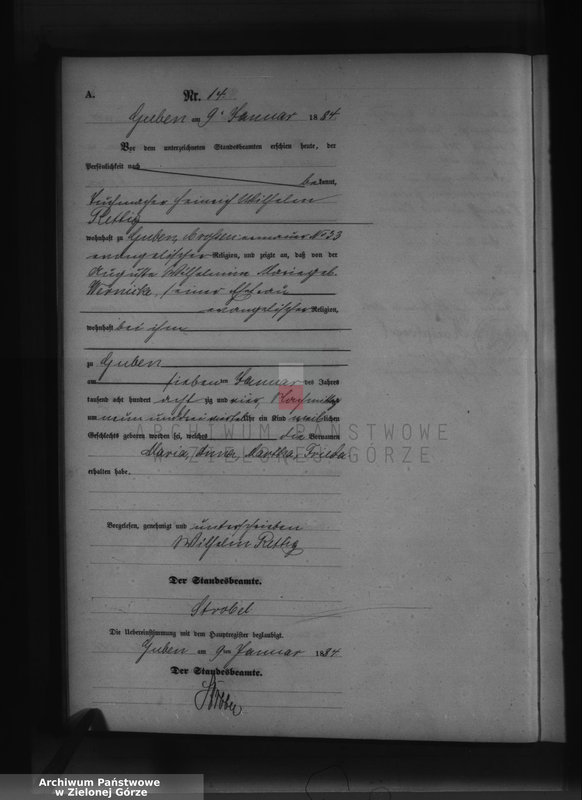 A.
Nr. 14
Guben am 9. Januar 1884
Vor dem unterzeichneten Standesbeamten erschien heute, der
Persönlichkeit nach
bekannt,
Tuchmacher Heinrich Wilhelm
Rettig
wohnhaft zu Guben, Crossener No 33
evangelischer Religion, und zeigte an, daß von der
Auguste Wilhelmine Marie geb.
Wernicke, seiner Ehefrau
evangelischer Religion,
wohnhaft bei ihm
zu Guben
am sieben ten Januar des Jahres
tausend acht hundert acht zig und vier Nachmittags
um neun und drei viertel Uhr ein Kind weiblichen
Geschlechts geboren worden sei, welches die Vornamen
Maria, Anna, Martha, Frieda
erhalten habe.
ARCHIWUM PAŃSTWOWE
W ZIELONEJ GÓRZE
Vorgelesen, genehmigt und unterschrieben
Wilhelm Rettig
Der Standesbeamte.
Strobel
Die Uebereinstimmung mit dem Hauptregister beglaubigt.
Guben am 9ten Januar 1884
Der Standesbeamte.
Archiwum Państwowe
w Zielonej Górze